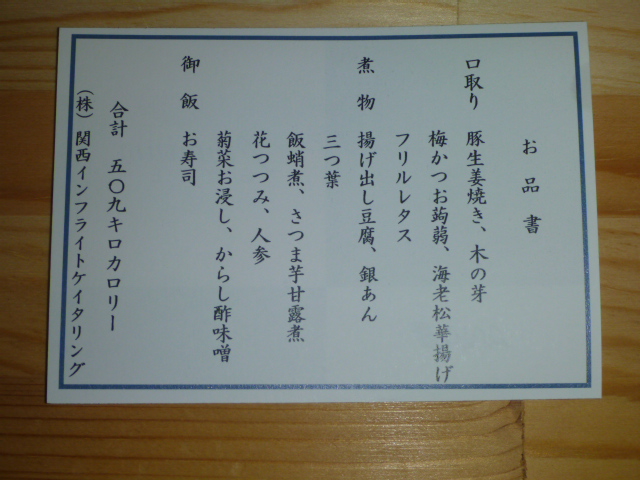 お品書
口取り 豚生姜焼き、木の芽
梅かつお蒟蒻、海老松華揚げ
フリルレタス
煮物 揚げ出し豆腐、銀あん
三つ葉
飯蛸煮、さつま芋甘露煮
花つつみ、人参
菊菜お浸し、からし酢味噌
御飯 お寿司
合計 五〇九キロカロリー
（株）関西インフライトケイタリング